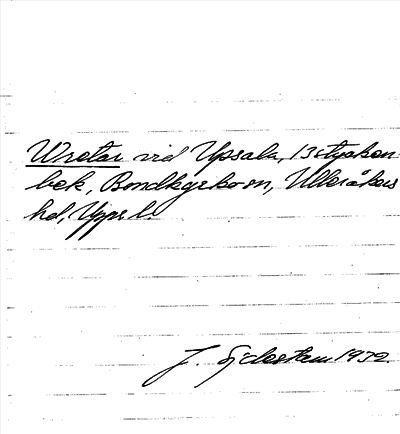 Wretar vid Upsala, 13stycken
Bondkyrko sn, Ulleråkers
hd, Upps. l.
J. Ejdestam 1932.